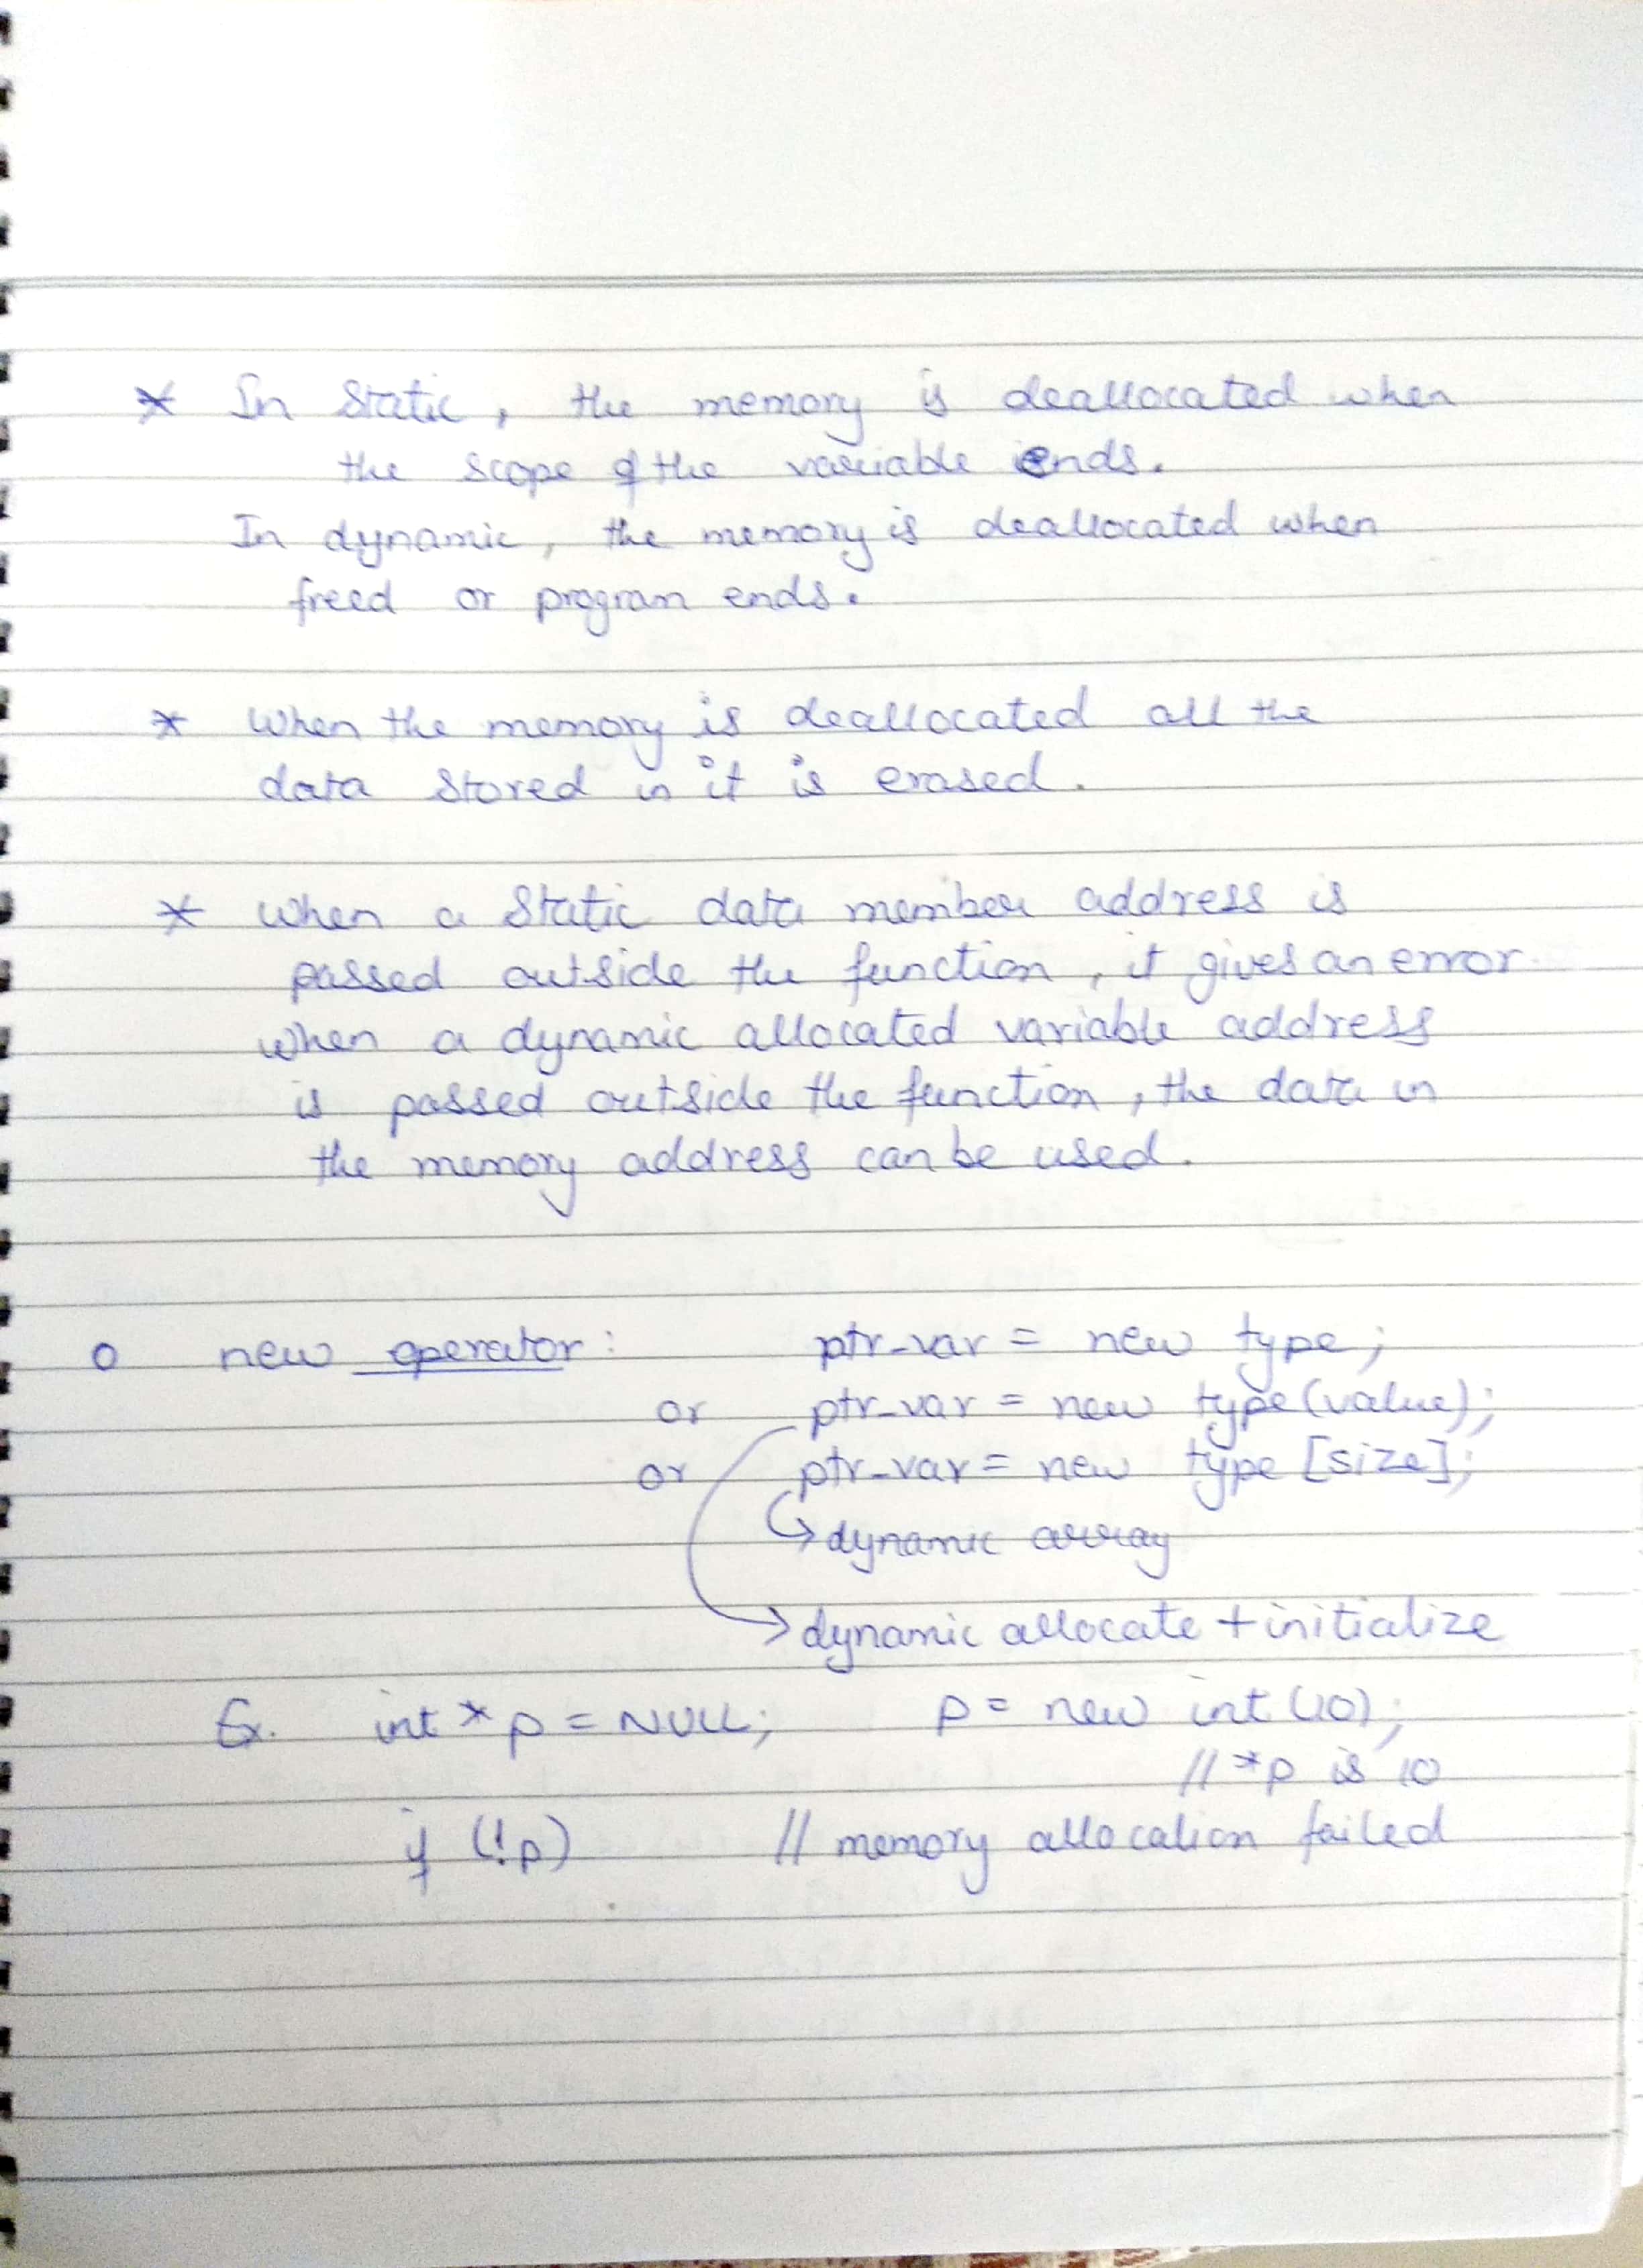 * In static, the memory is deallocated when
the scope of the variable ends.
In dynamic, the memory is deallocated when
freed or program ends.
* When the memory is deallocated all the
data stored in it is erased.
* When a static data member address is
passed outside the function, it gives an error
when a dynamic allocated variable address
is passed outside the function, the data in
the memory address can be used.
o new operator: ptr_var = new type;
or ptr_var = new type(value);
or ptr_var = new type [size];
↳ dynamic array
→ dynamic allocate + initialize
Ex. int *p = NULL; p = new int (10);
// *p is 10
if (!p) // memory allocation failed